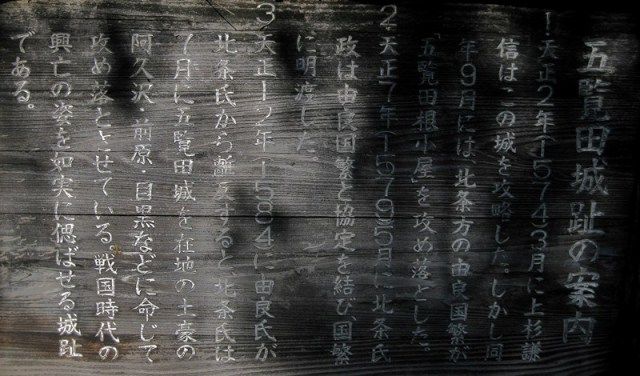 五覧田城趾の案内
1.天正2年(1574)3月に上杉謙
信はこの城を攻略した。しかし同
年9月には、北条方の由良国繁が
「五覧田根小屋」を攻め落とした。
2.天正7年(1579)5月に北条氏
政は由良国繁と協定を結び、国繁
に明渡した。
3.天正12年(1584)に由良氏が
北条氏から離反すると、北条氏は
7月に五覧田城を在地の土豪の
阿久沢・前原・目黒などに命じて
攻め落とさせている。戦国時代の
興亡の姿を如実に偲ばせる城趾
である。